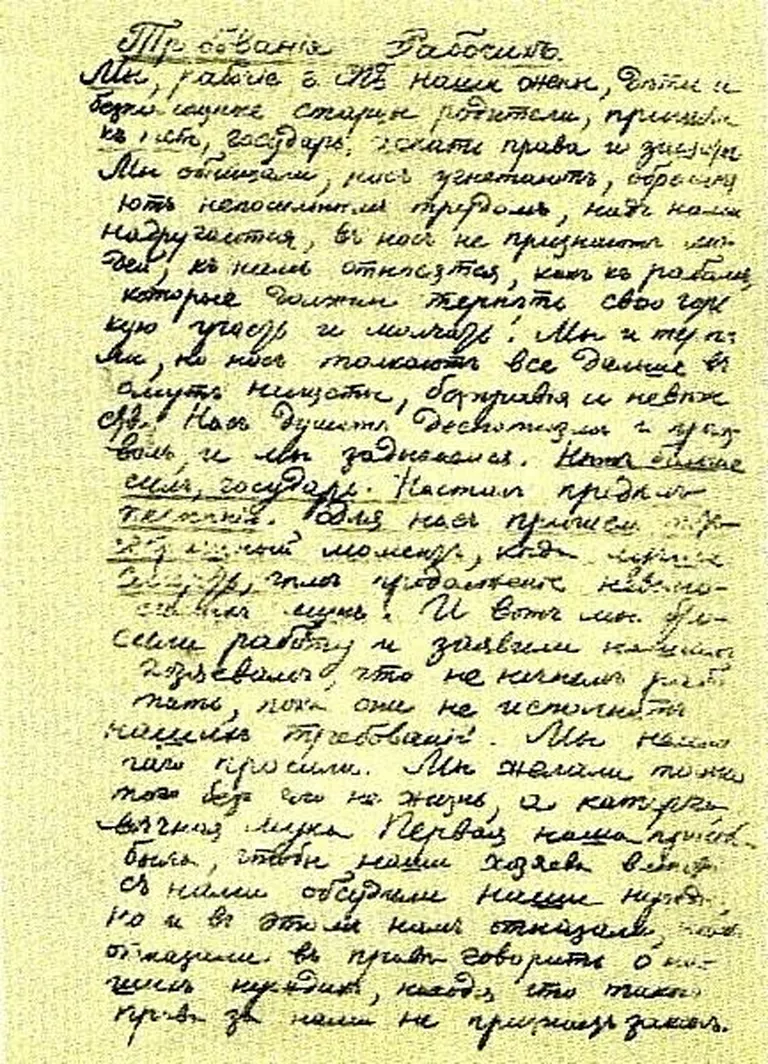 Требованія Рабочихъ.
Мы, рабочіе г. наши жены, дѣти и
старцы родители, пришли
къ государь, искати права и защиты
Мы обнищали, насъ угнетаютъ, обременя
ютъ непосильнымъ трудомъ, надъ нами
надругаются, въ насъ не признаютъ лю-
дей, къ намъ относятся, какъ къ рабамъ,
которые должны терпѣть свою горь
кую участь и молчать! Мы и терпѣ
ли, но насъ толкаютъ все дальше въ
омутъ нищеты, безправія и невѣж
ств. Насъ душатъ деспотизмъ и произ
волъ, и мы задыхаемся. Нѣтъ больше
силъ, государь. Насталъ предѣлъ
терпѣнія. Для насъ пришелъ
моментъ, когда лучше
смерть, продолженіе невыно-
мукъ. И вотъ мы бро-
сили работу и заявили нашимъ
хозяевамъ, что не начнемъ рабо
тать, пока они не исполнятъ
нашихъ требованій. Мы немно
гаго просили. Мы желали только
того безъ чего не жизнь, а каторга,
вѣчная мука Первая наша просьб
была, чтобы наши хозяева вмѣстѣ
съ нами обсудили наши нужды,
но и въ этомъ намъ отказали,
отказали въ правѣ говорить о на-
шихъ нуждахъ, находя что такого
права за нами не признаетъ законъ.